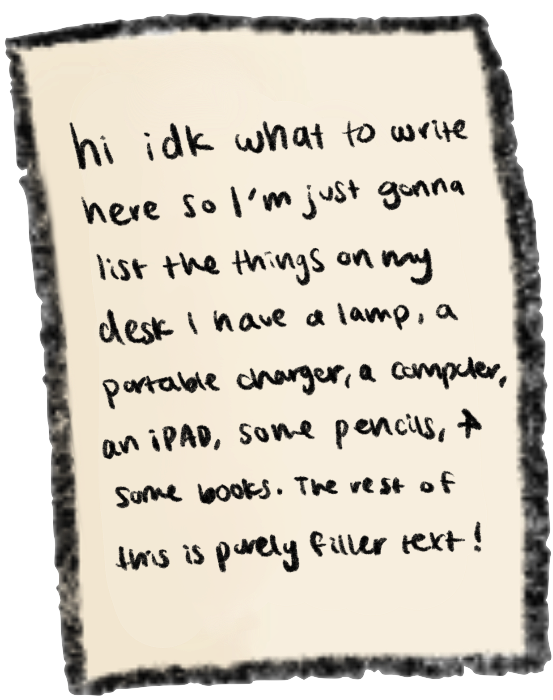 hi idk what to write
here so I'm just gonna
list the things on my
desk I have a lamp, a
portable charger, a computer,
an iPAD, some pencils, +
some books. The rest of
this is purely filler text!